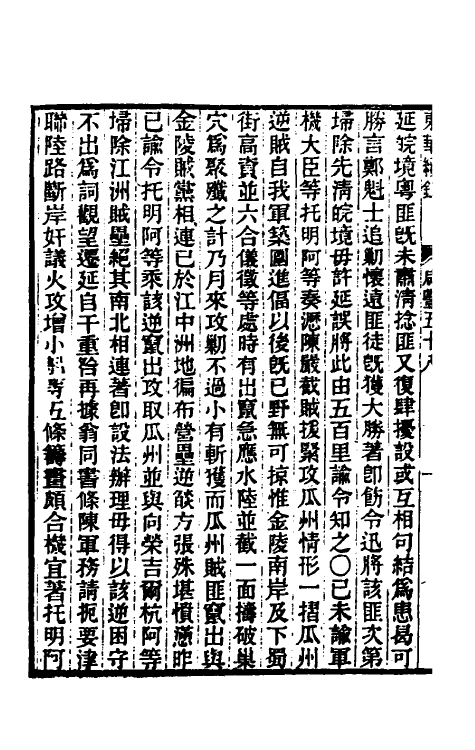 東華續錄 咸豐五十八 一
延皖境粵匪旣未肅清捻匪又復肆擾設或互相句結爲患曷可
勝言鄭魁士追勦懷遠匪徒旣獲大勝著卽飭令迅將該匪次第
埽除先清皖境毋許延誤將此由五百里諭令知之〇己未諭軍
機大臣等托明阿等奏瀝陳嚴截賊援緊攻瓜州情形一摺瓜州
逆賊自我軍築圍進偪以後旣已野無可掠惟金陵南岸及下蜀
街高資並六合儀徵等處時有出竄急應水陸並截一面擣破巢
穴爲聚殲之計乃月來攻勦不過小有斬獲而瓜州賊匪竄出與
金陵賊黨相連已於江中洲地徧布營壘逆燄方張殊堪憤懣昨
已諭令托明阿等乘該逆竄出攻取瓜州並與向榮吉爾杭阿等
埽除江洲賊壘絕其南北相連著卽設法辦理毋得以該逆困守
不出爲詞觀望遷延自干重咎再據翁同書條陳軍務請扼要津
聯陸路斷岸奸議火攻增小船等五條籌畫頗合機宜著托明阿